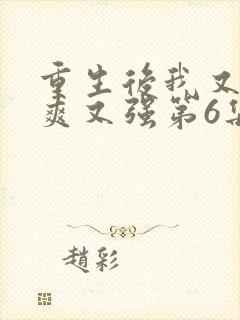 重生後我又
爽又强第6集
趙彩